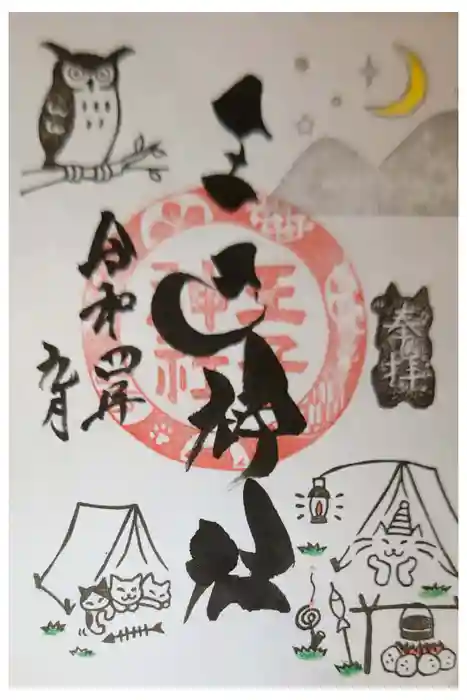 奉拝
王子神社
王子
神社
令和四年
九月